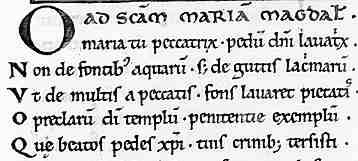 AD SCAM MARIAM MAGDAL̄.
O maria tu peccatrix. pedū dn̄i lauatx̄.
Non de fontibꝰ aquarū. s; de guttis lac̄marū.
Vt de multis a peccatis. fons lauaret pietatis̄.
O preclarū dī templū. penitentie exemplū.
Que beatos pedes xp̄i. tuis crinibꝫ tersisti.